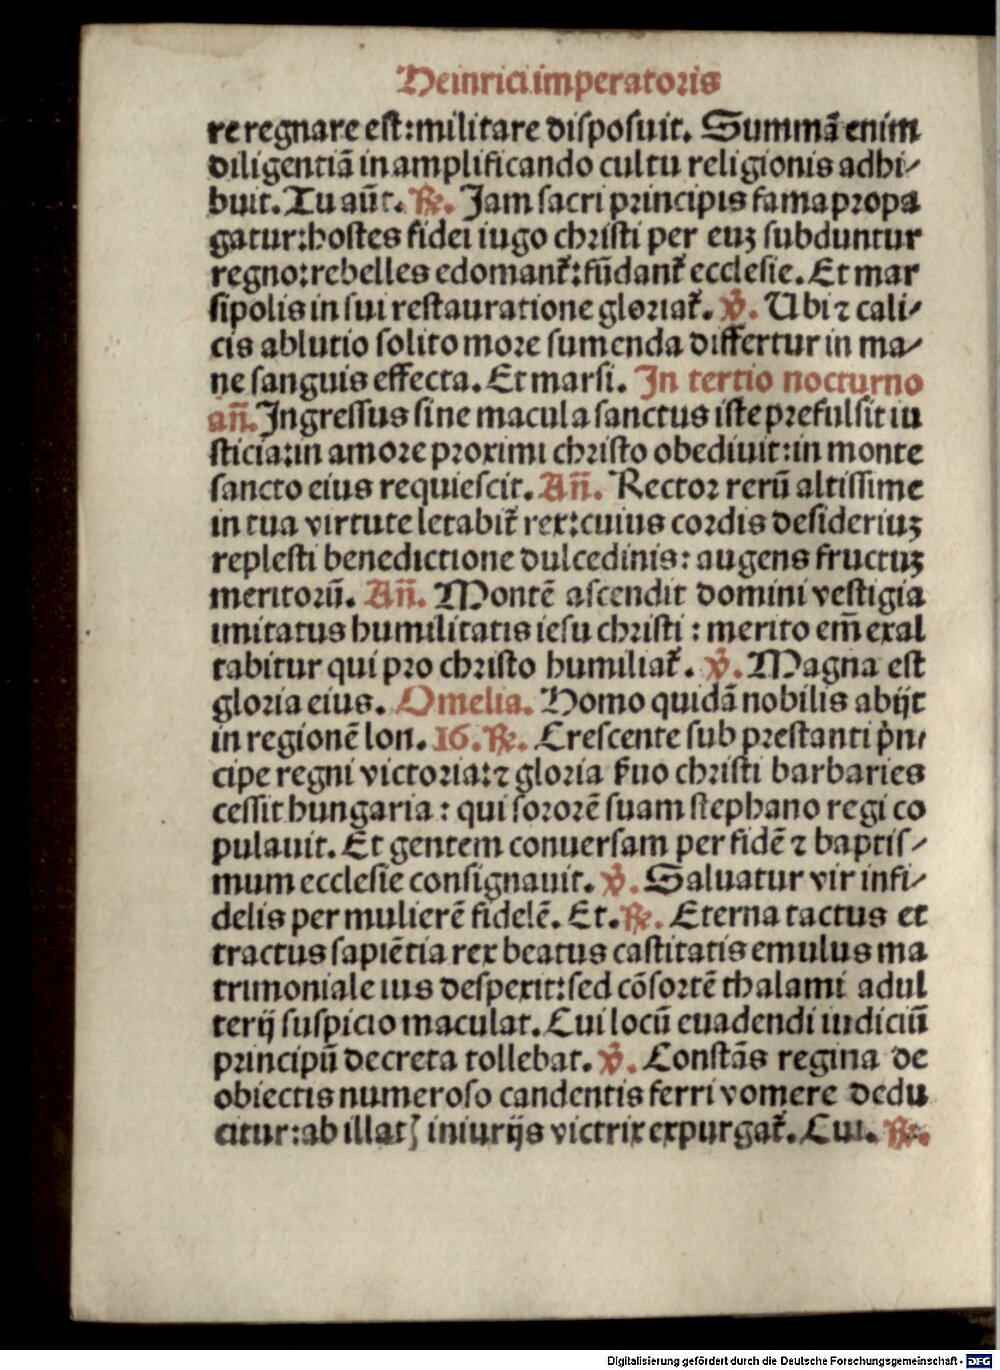 Heinrici imperatoris
re regnare est:militare disposuit. Summā enim
diligentiā in amplificando cultu religionis adhi⸗
buit. Tu aūt. ℟. Jam sacri principis fama propa
gatur:hostes fidei iugo christi per euꝫ subduntur
regno:rebelles edomant᷑:fūdant᷑ ecclesie. Et mar
sipolis in sui restauratione gloriat᷑. ℣. Ubi ⁊ cali⸗
cis ablutio solito more sumenda differtur in ma⸗
ne sanguis effecta. Et marsi. In tertio nocturno
an̄. Ingressus sine macula sanctus iste prefulsit iu
sticia:in amore proximi christo obediuit:in monte
sancto eius requiescit. An̄. Rector rerū altissime
in tua virtute letabit᷑ rex:cuius cordis desideriuꝫ
replesti benedictione dulcedinis: augens fructuꝫ
meritorū. An̄. Montē ascendit domini vestigia
imitatus humilitatis iesu christi : merito em̄ exal
tabitur qui pro christo humiliat᷑. ℣. Magna est
gloria eius. Omelia. Homo quidā nobilis abijt
in regionē lon. 16. ℟. Crescente sub prestanti p̄n⸗
cipe regni victoria:⁊ gloria s̄uo christi barbaries
cessit hungaria : qui sororē suam stephano regi co
pulauit. Et gentem conuersam per fidē ⁊ baptis⸗
mum ecclesie consignauit. ℣. Saluatur vir infi⸗
delis per mulierē fidelē. Et. ℟. Eterna tactus et
tractus sapiētia rex beatus castitatis emulus ma
trimoniale ius despexit:sed cōsortē thalami adul
terij suspicio maculat. Cui locū euadendi iudiciū
principū decreta tollebat. ℣. Constās regina de
obiectis numeroso candentis ferri vomere dedu
citur:ab illatꝭ iniurijs victrix expurgat᷑. Cui. ℟.
Digitalisierung gefördert durch die Deutsche Forschungsgemeinschaft - DFG